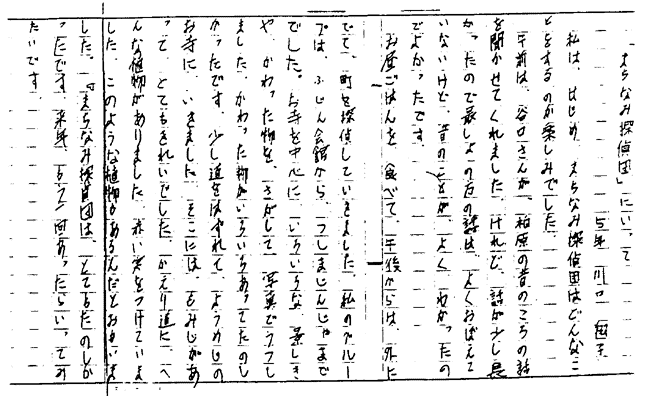 「まちなみ探偵団」にいって
五年 川口
私は、はじめ、まちなみ探偵団はどんなこ
とをするのか楽しみでした。
午前は、谷口さんが、柏原の昔のころの話
を聞かせてくれました。けれど、話が少し長
かったので最しょの方の話は、よくおぼえて
いないけど、昔のことが、よくわかったの
でよかったです。
お昼ごはんを、食べて、午後からは、外に
でて、町を探偵していきました。私のグルー
プは、ふじん会館から、つしまじんじゃまで
でした。お寺を中心に、いろいろな、景しき
や、かわった物を、さがして、写真でうつし
ました。かわった物がいろいろあってたのし
かったです。少し道をはずれて、ようめいの
お寺に、いきました。そこには、もみじがあ
って、とてもきれいでした。かえり道に、へ
んな植物がありました。赤い実をつけていま
した。このような植物もあるんだとおもいま
した。「まちなみ探偵団は、とてもたのしか
ったです。来年、もう一回あったらいってみ
たいです。